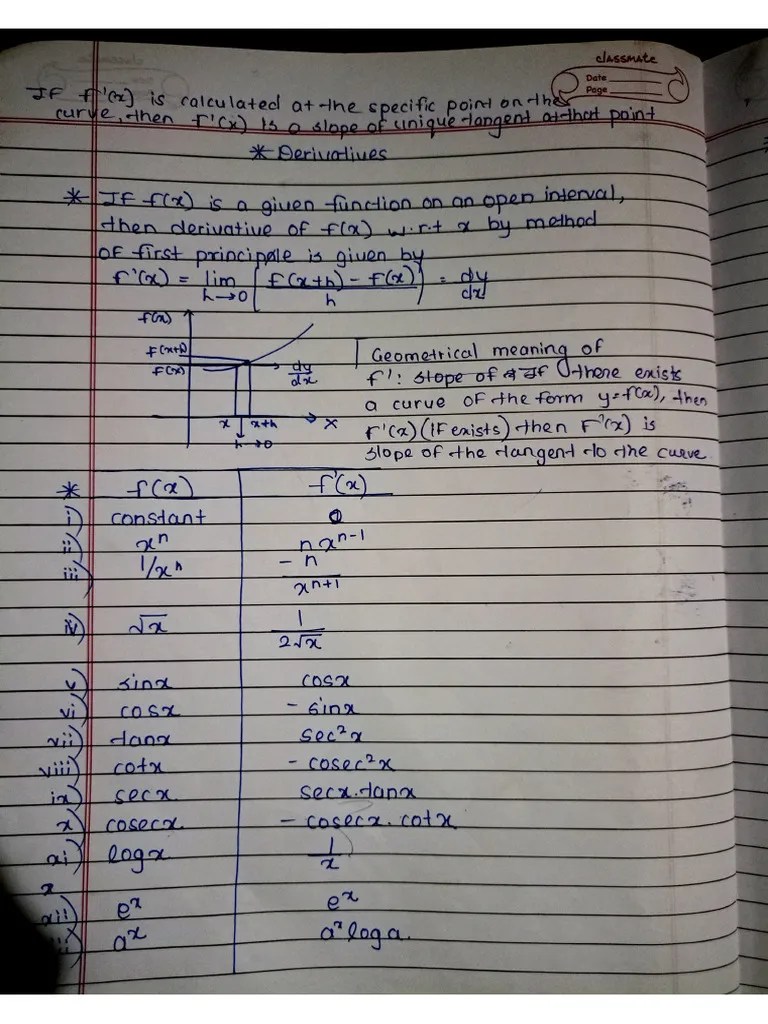 classmate
Date
Page
If f'(x) is calculated at the specific point on the
curve, then f'(x) is a slope of unique tangent at that point
* Derivatives
* If f(x) is a given function on an open interval,
then derivative of f(x) w.r.t x by method
of first principle is given by
f'(x) = lim h→0 [f(x+h) - f(x) / h] = dy/dx
f(x)
f(x+h)
f(x)
dy/dx
x x+h X
h→0
Geometrical meaning of
f': slope of If there exists
a curve of the form y=f(x), then
f'(x) (if exists) then f'(x) is
slope of the tangent to the curve.
* f(x) f'(x)
i) constant 0
ii) xⁿ n xⁿ⁻¹
iii) 1/xⁿ -n/xⁿ⁺¹
iv) √x 1/2√x
v) sinx cosx
vi) cosx - sinx
vii) tanx sec²x
viii) cotx - cosec²x
ix) secx. secx.tanx
x) cosecx. - cosecx.cotx
xi) logx 1/x
x
xii) eˣ eˣ
aˣ aˣ log a.